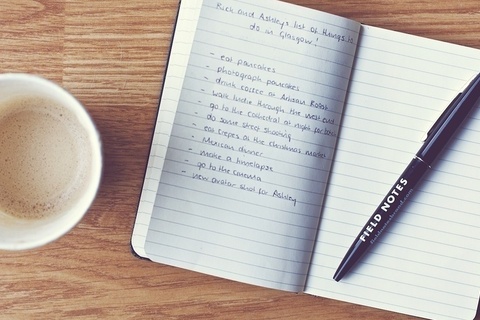 Rich and Ashley's list of things to
do in Glasgow!
- eat pancakes
- photograph pancakes
- drink coffee at Artisan Roast
- walk Indie through the west end
- go to the cathedral at night for
- do some street shooting
- eat crepes at the Christmas market
- Mexican dinner
- make a timelapse
- go to the cinema
- new avatar shot for Ashley
FIELD NOTES